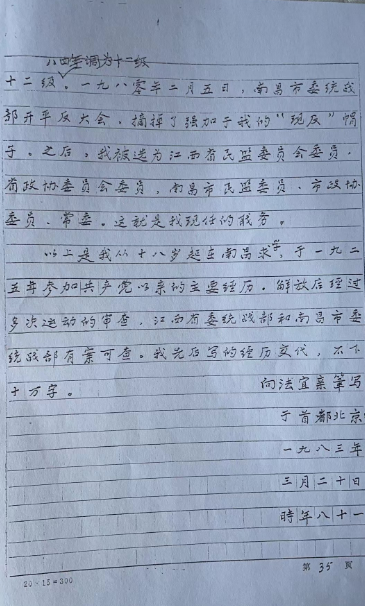 八四年调为十二级
十二级。一九八零年二月五日，南昌市委统战
部开平反大会，摘掉了强加于我的“现反”帽
子。之后，我被选为江西省民盟委员会委员、
省政协委员会委员，南昌市民盟委员、市政协
委员、常委。这就是我现任的职务。
以上是我从十八岁起在南昌求学，于一九二
五年参加共产党以来的主要经历。解放后经过
多次运动的审查，江西省委统战部和南昌市委
统战部有案可查。我先后写的经历交代，不下
十万字。 向法宜亲笔写
于首都北京
一九八三年
三月二十日
時年八十一
20·15=300 第35頁